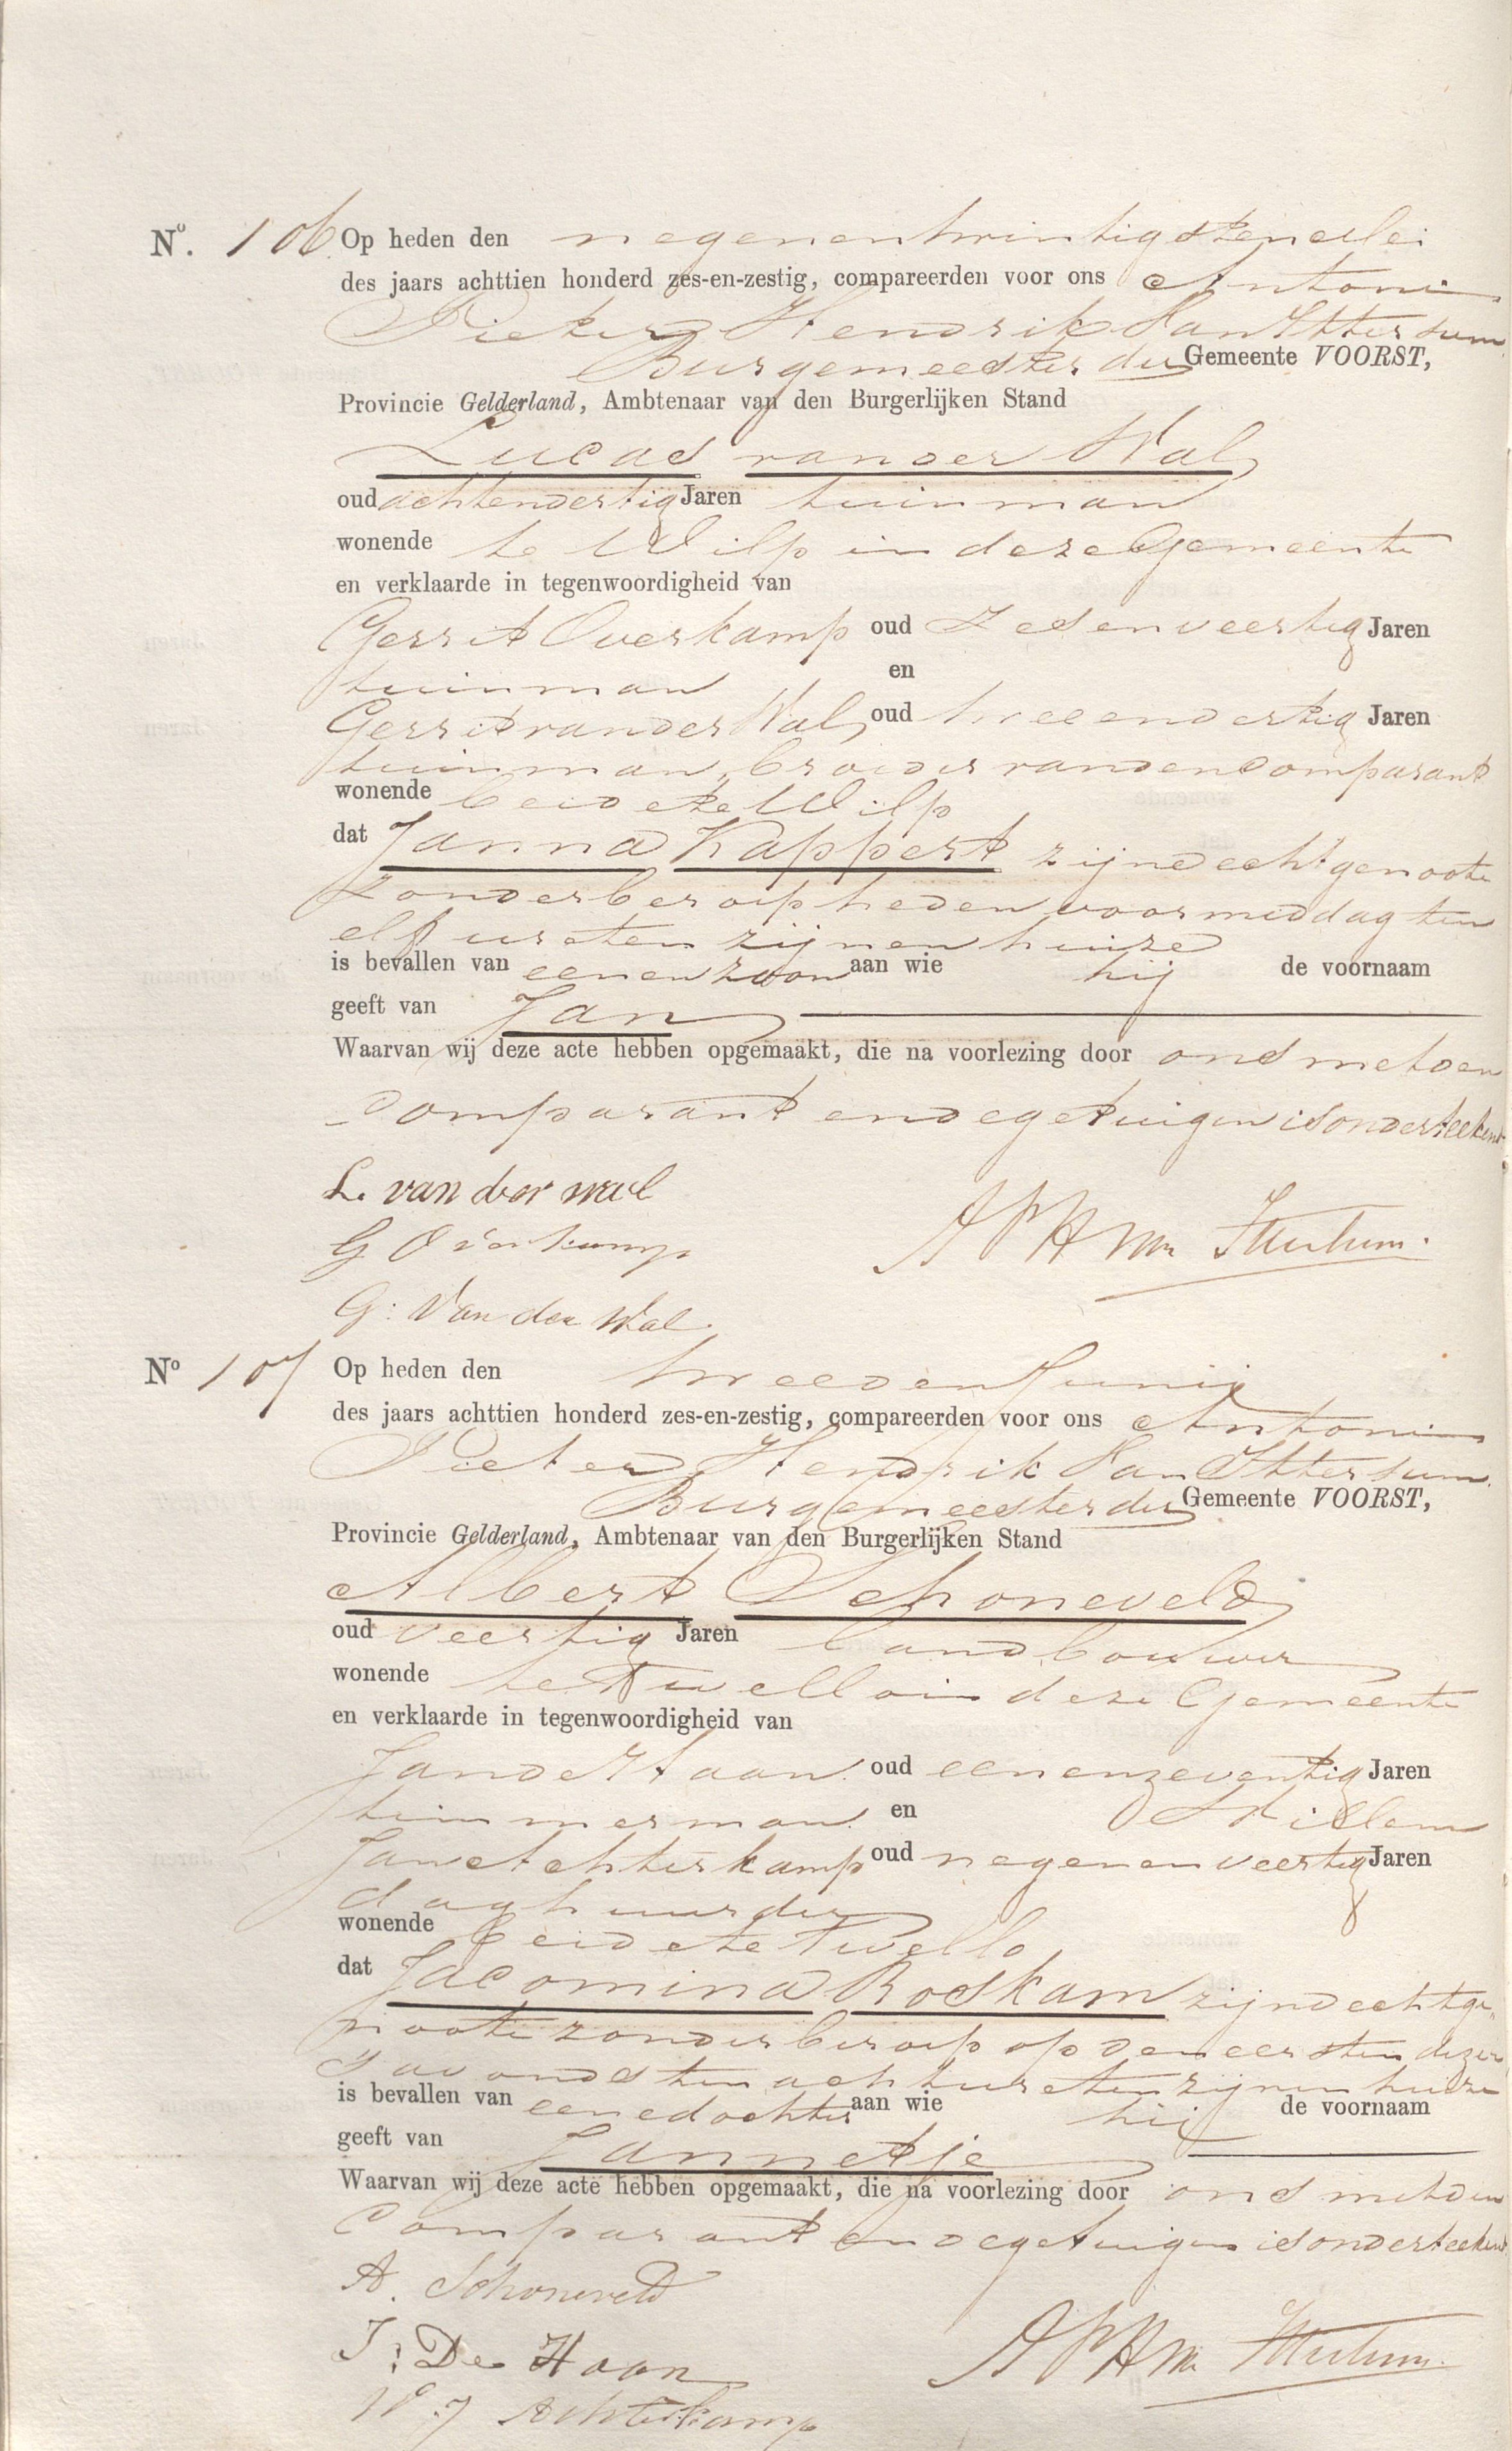 No. 106. Op heden den negenentwintigsten Mei
des jaars achttien honderd zes-en-zestig, compareerden voor ons Antonie
Pieter Hendrik Van Ittersum
Burgemeester der Gemeente VOORST,
Provincie Gelderland, Ambtenaar van den Burgerlijken Stand
Lucas van der Wal
oud achtendertig Jaren tuinman
wonende te Wilp in deze Gemeente
en verklaarde in tegenwoordigheid van
Gerrit Overkamp oud Zesenveertig Jaren
tuinman en
Gerrit van der Wal oud tweeendertig Jaren
tuinman, broeder van den Comparant
wonende beide te Wilp
dat Janna Kappert zijne echtgenoote
Zonder beroep heden voormiddag ten
elf ure ten zijnen huize
is bevallen van eenen zoon aan wie hij de voornaam
geeft van Jan
Waarvan wij deze acte hebben opgemaakt, die na voorlezing door ons met den
Comparant en de getuigen is onderteekend.
L. van der wal
G Overkamp
APH van Ittersum.
G: Van der Wal.
No 107 Op heden den tweeden Junij
des jaars achttien honderd zes-en-zestig, compareerden voor ons Antonie
Pieter Hendrik Van Ittersum
Burgemeester der Gemeente VOORST,
Provincie Gelderland, Ambtenaar van den Burgerlijken Stand
Albert Schoneveld
oud veertig Jaren landbouwer
wonende te Twello in deze Gemeente
en verklaarde in tegenwoordigheid van
Jan de Haan oud eenenzeventig Jaren
timmerman en Willem
Jan Achterkamp oud negenenveertig Jaren
daghuurder
wonende beide te Twello
dat Jacomina Boskam zijne echtge„
noote zonder beroep op den eersten dezer
's avonds ten acht ure ten zijnen huize
is bevallen van eene dochter aan wie hij de voornaam
geeft van Jannetje
Waarvan wij deze acte hebben opgemaakt, die na voorlezing door ons met den
Comparant en de getuigen is onderteekend
A. Schoneveld
J: De Haan
APH van Ittersum.
W. J Achterkamp